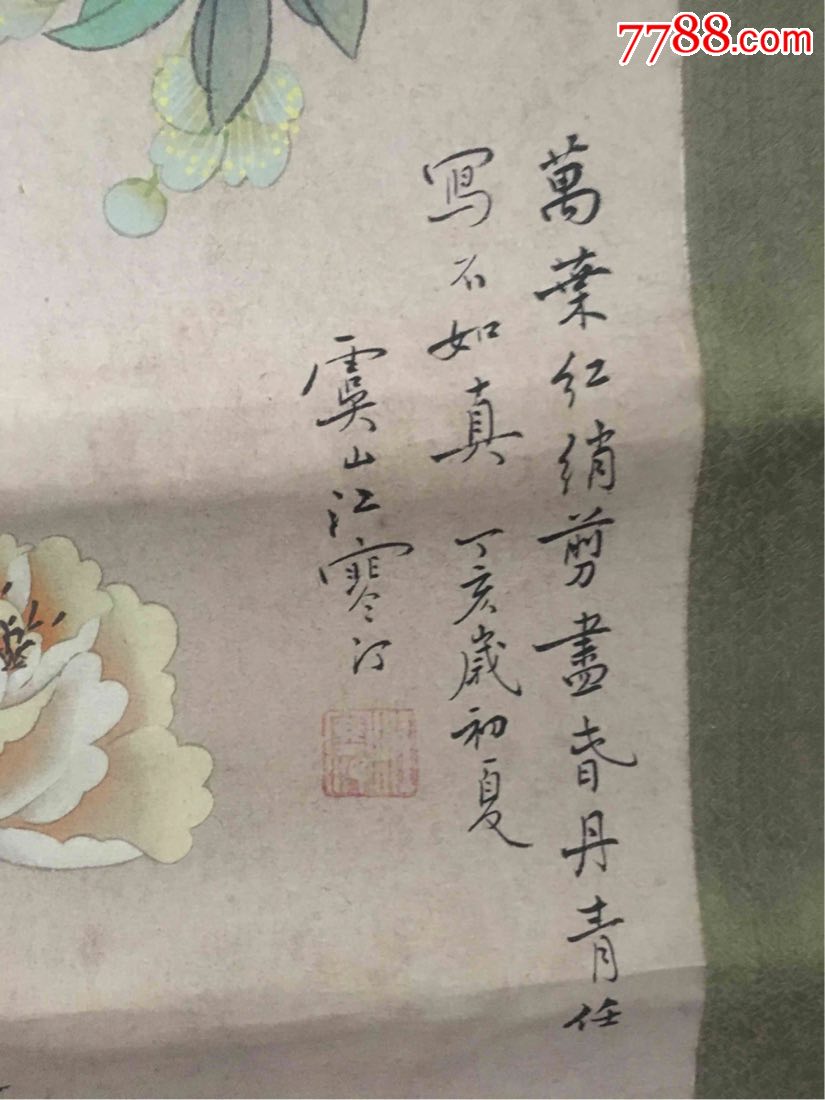 7788.com
萬葉紅綃剪盡春丹青任
寫不如真 丁亥歲初夏
虞山江寒汀